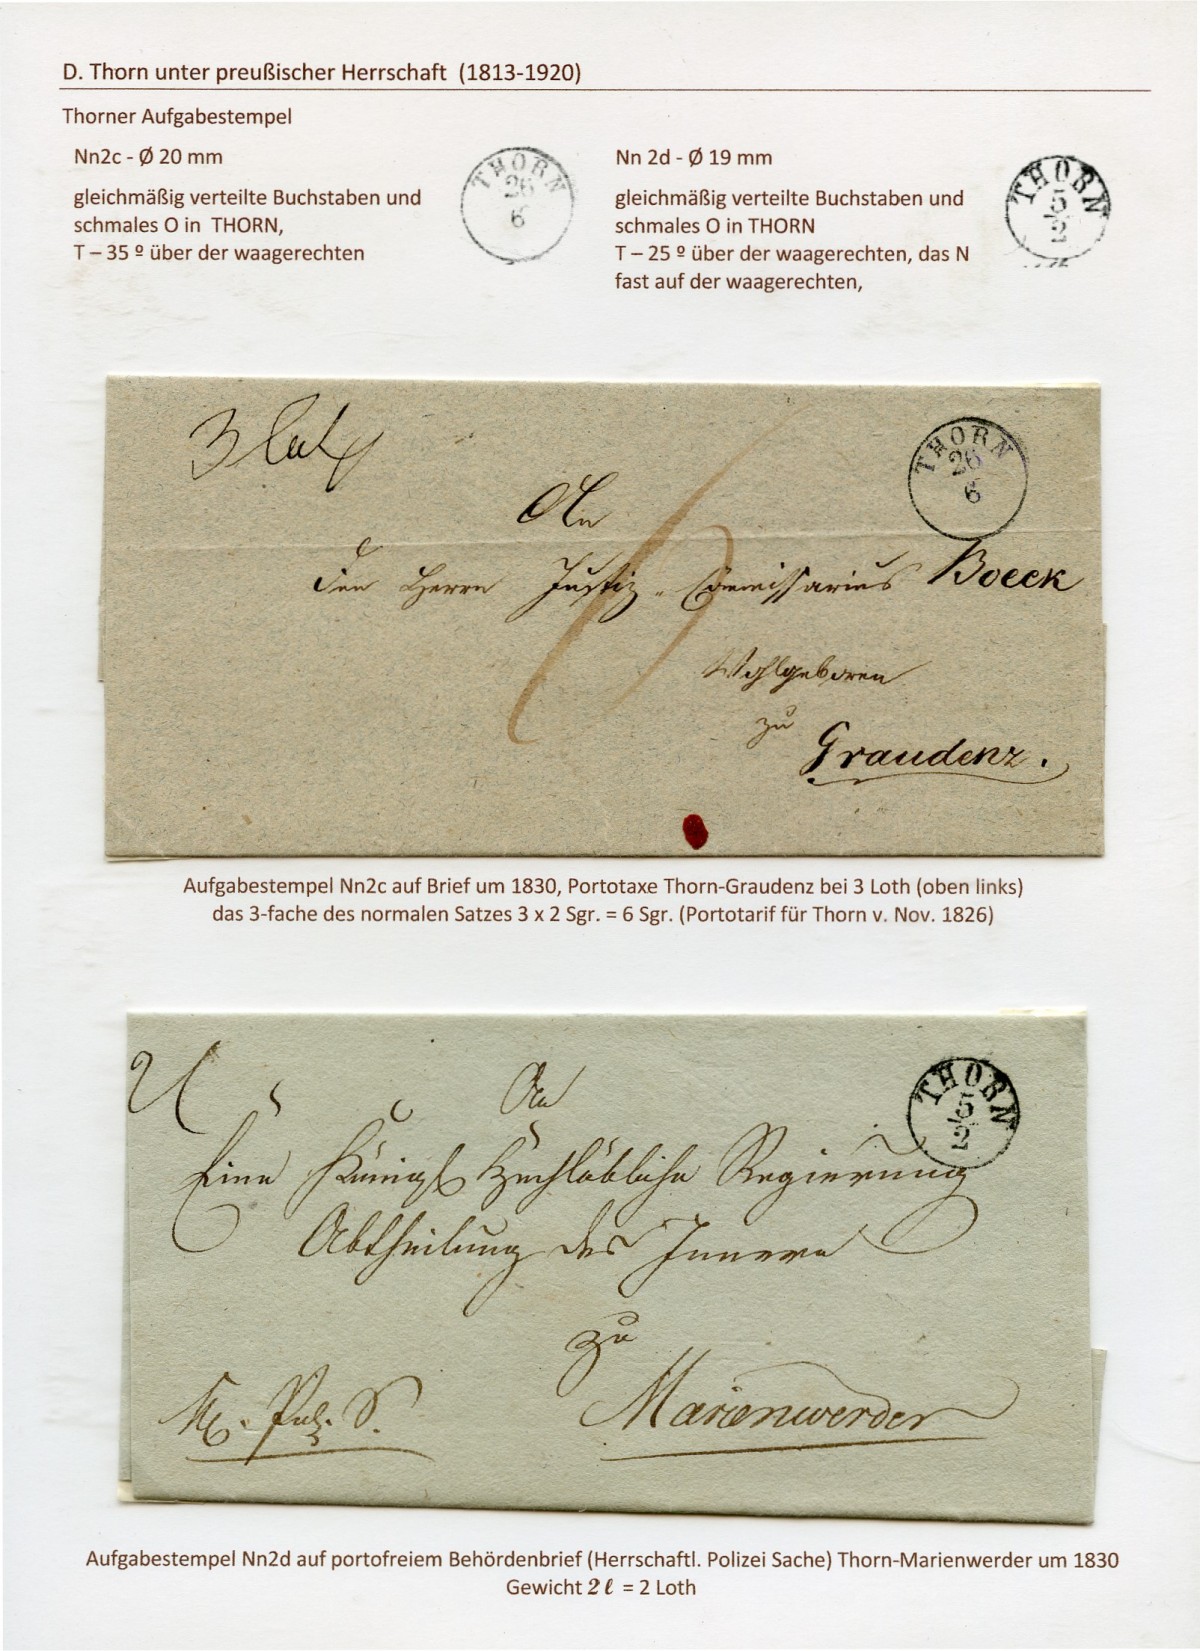 D. Thorn unter preußischer Herrschaft (1813-1920)
Thorner Aufgabestempel
Nn2c - Ø 20 mm
gleichmäßig verteilte Buchstaben und
schmales O in THORN,
T – 35 º über der waagerechten
THORN
26
6
Nn 2d - Ø 19 mm
gleichmäßig verteilte Buchstaben und
schmales O in THORN
T – 25 º über der waagerechten, das N
fast auf der waagerechten,
THORN
5
2
3 Loth
THORN
26
6
An
den Herrn Justiz-Commissarius Boeck
Wohlgeboren
zu
Graudenz.
6
Aufgabestempel Nn2c auf Brief um 1830, Portotaxe Thorn-Graudenz bei 3 Loth (oben links)
das 3-fache des normalen Satzes 3 x 2 Sgr. = 6 Sgr. (Portotarif für Thorn v. Nov. 1826)
2 l
THORN
5
2
An
Eine Königl Hochlöbliche Regierung
Abtheilung des Innern
zu
Marienwerder
Pol. S.
Aufgabestempel Nn2d auf portofreiem Behördenbrief (Herrschaftl. Polizei Sache) Thorn-Marienwerder um 1830
Gewicht 2 ℓ = 2 Loth